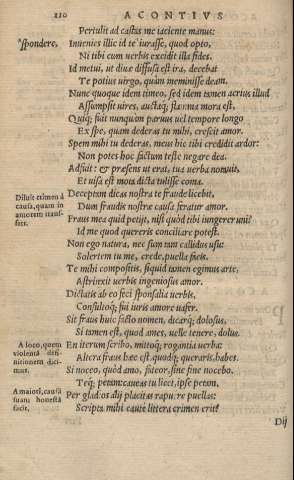 210 ACONTIVS
Pertulit ad castas me iaciente manus:
'spondere, Inuenies illic id te iurasse, quod opto,
Ni tibi cum uerbis excidit illa fides.
Id metui, ut diuæ diffusa est ira, decebat
Te potius uirgo, quàm meminisse deam.
Nunc quoque idem timeo, sed idem tamen acrius illud
Assumpsit uires, auctaq; flamma mora est,
Quiq; fuit nunquam paruus uel tempore longo
Ex spe, quam dederas tu mihi, crescit amor.
Spem mihi tu dederas, meus hic tibi credidit ardor:
Non potes hoc factum teste negare dea.
Adfuit: & præsens ut erat, tua uerba notauit,
Et uisa est mota dicta tulisse coma.
Diluit crimen à
causa, quam in
amorem trans-
fert.
Deceptam dicas nostra te fraude licebit,
Dum fraudis nostræ causa feratur amor.
Fraus mea quid petijt, nisi quòd tibi iungerer uni?
Id me quod quereris conciliare potest.
Non ego natura, nec sum tam callidus usu:
Solertem tu me, crede, puella facis.
Te mihi compositis, siquid tamen egimus arte,
Astrinxit uerbis ingeniosus amor.
Dictatis ab eo feci sponsalia uerbis,
Consultoq; fui iuris amore uafer.
Sit fraus huic facto nomen, dicarq; dolosus,
Si tamen est, quod ames, uelle tenere, dolus.
A loco, quem
violentâ defi-
nitionem dici-
mus.
En iterum scribo, mittoq; rogantia uerba:
Altera fraus hæc est, quodq; queraris, habes.
Si noceo, quòd amo, fateor, sine fine nocebo.
Teq; petam: caueas tu licet, ipse petam,
A maiori, causã
suam honestã
facit.
Per gladios alij placitas rapuere puellas:
Scripta mihi caute littera crimen erit?
Dij